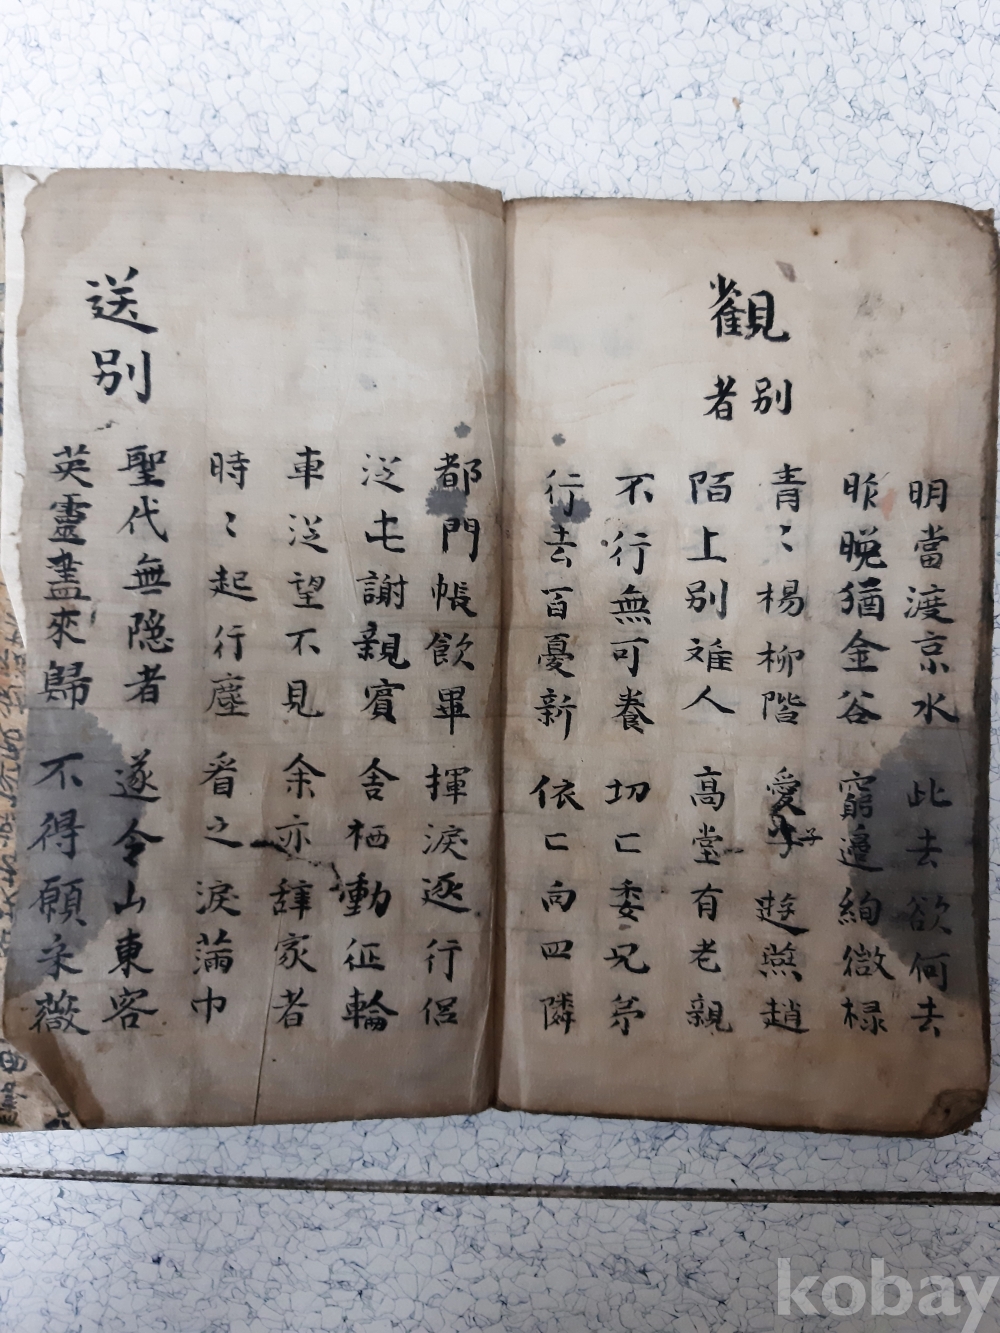 明當渡京水 此去欲何去
昨晚猶金谷 窮邊絢微祿
觀別者
青〻楊柳階 愛子子遊燕趙
陌上別难人 高堂有老親
不行無可養 切〻委兄苐
行去百憂新 依〻向四隣
都門帳飲畢 揮淚逐行侶
泛屯謝親賓 舍栖動征輪
車泛望不見 余亦辞家者
時〻起行塵 看之淚滿巾
送別
聖代無隐者 遂令山東客
英靈盡來歸 不得願采薇
kobay